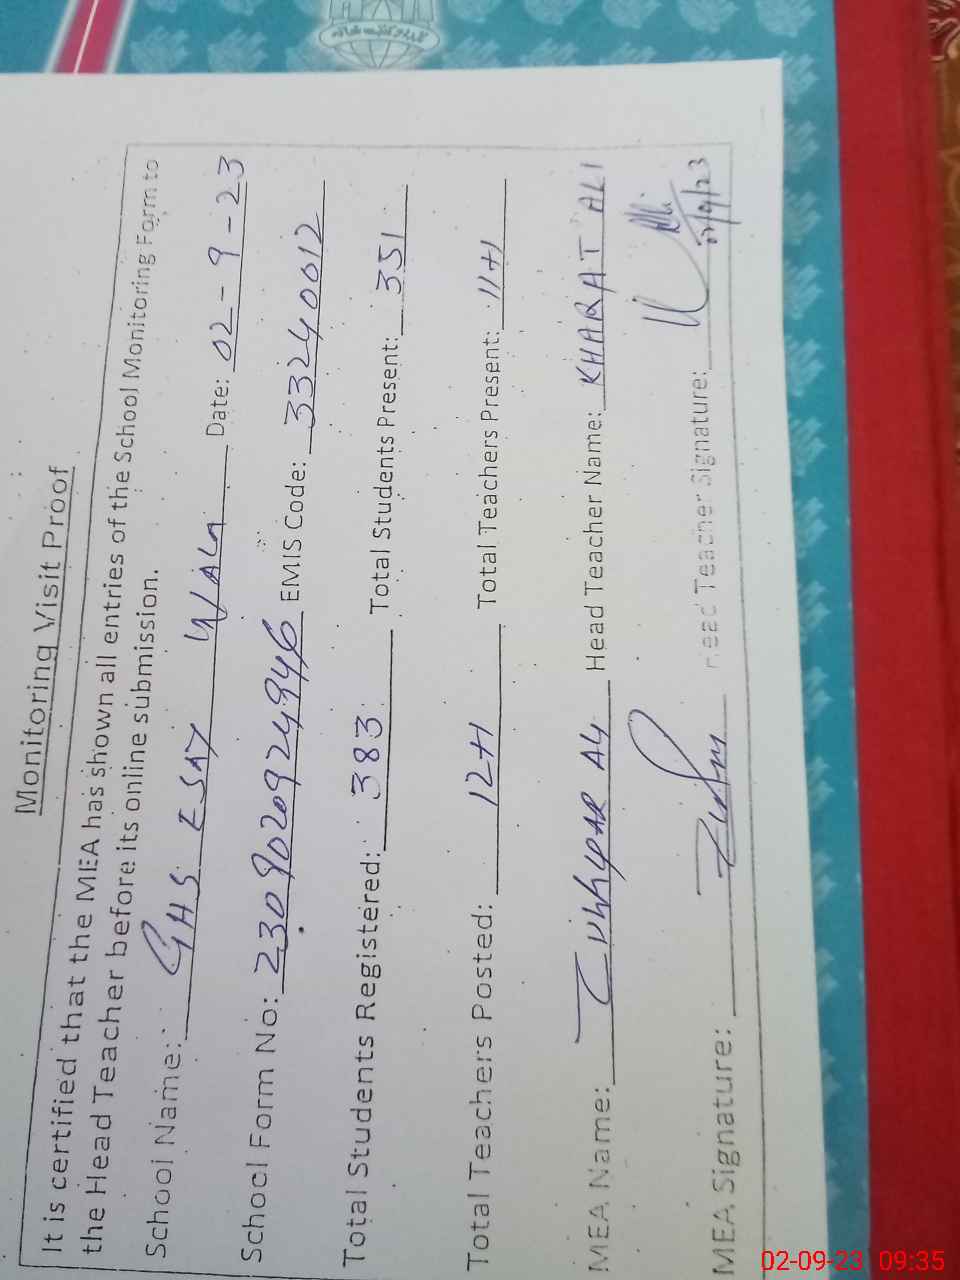 Monitoring Visit Proof
It is certified that the MEA has shown all entries of the School Monitoring Form to
the Head Teacher before its online submission.
School Name: GHS ESAY WALA Date: 02-9-23
School Form No: 2309020924946 EMIS Code: 33240012
Total Students Registered: 383 Total Students Present: 351
Total Teachers Posted: 12+1 Total Teachers Present: 11+1
MEA Name: Head Teacher Name: KHARAT ALI
MEA Signature: Head Teacher Signature:
2/9/23
02-09-23 09:35